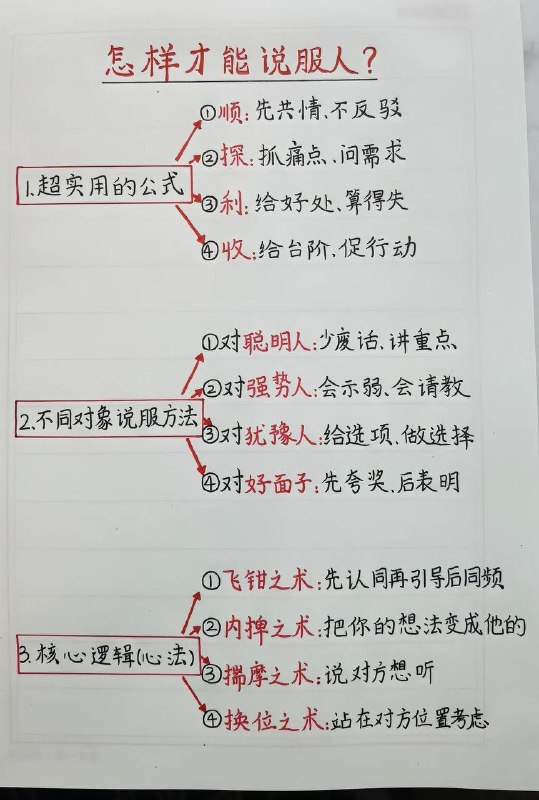 怎样才能说服人?
1.超实用的公式
①顺:先共情、不反驳
②探:抓痛点、问需求
③利:给好处、算得失
④收:给台阶、促行动
2.不同对象说服方法
①对聪明人:少废话、讲重点
②对强势人:会示弱、会请教
③对犹豫人:给选项、做选择
④对好面子:先夸奖、后表明
3.核心逻辑(心法)
①飞钳之术:先认同再引导后同频
②内捭之术:把你的想法变成他的
③揣摩之术:说对方想听
④换位之术:站在对方位置考虑